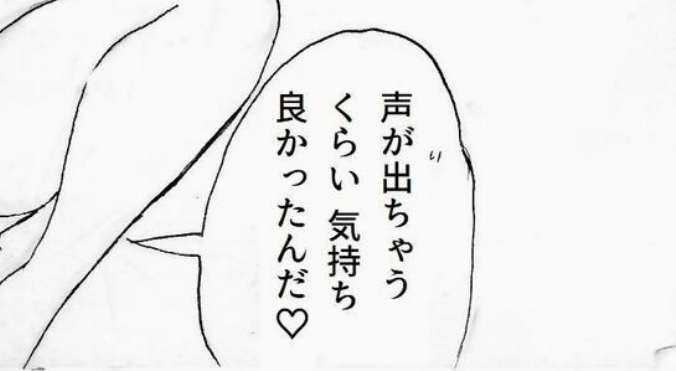 声が出ちゃう
くらい 気持ち
良かったんだ♡